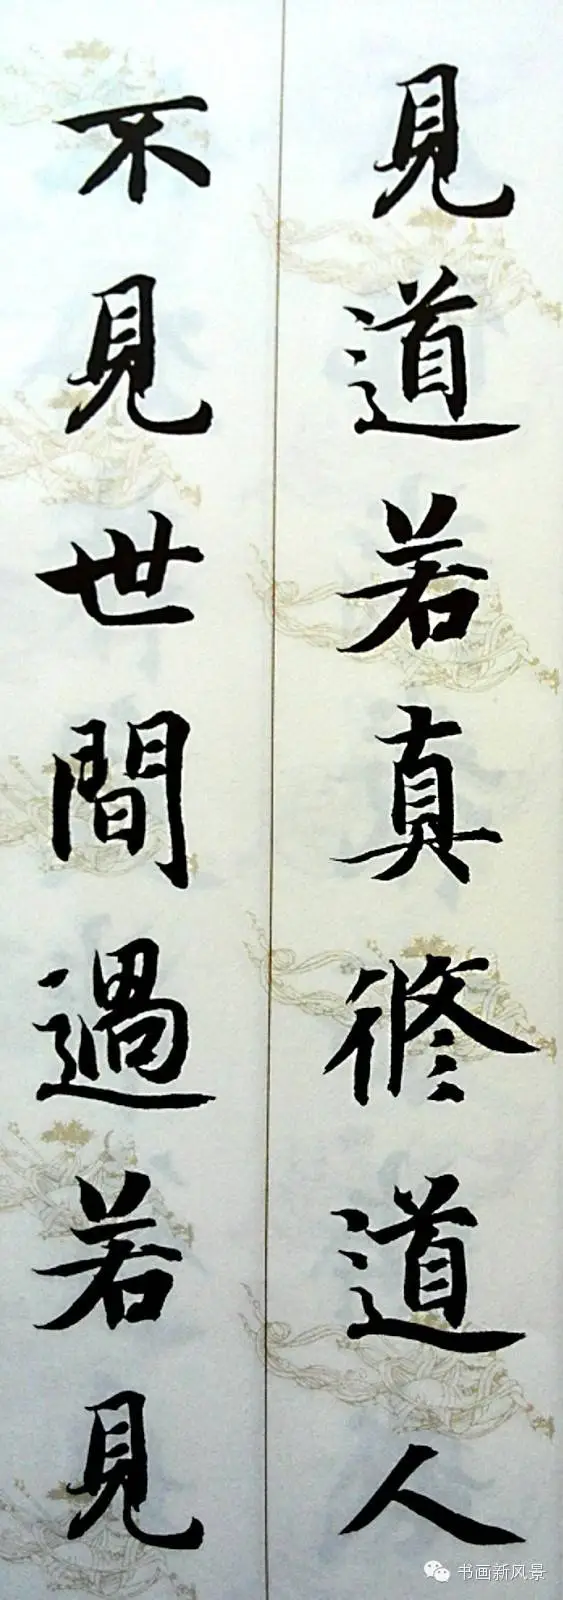 見道若真修道人
不見世間過若見
书画新风景